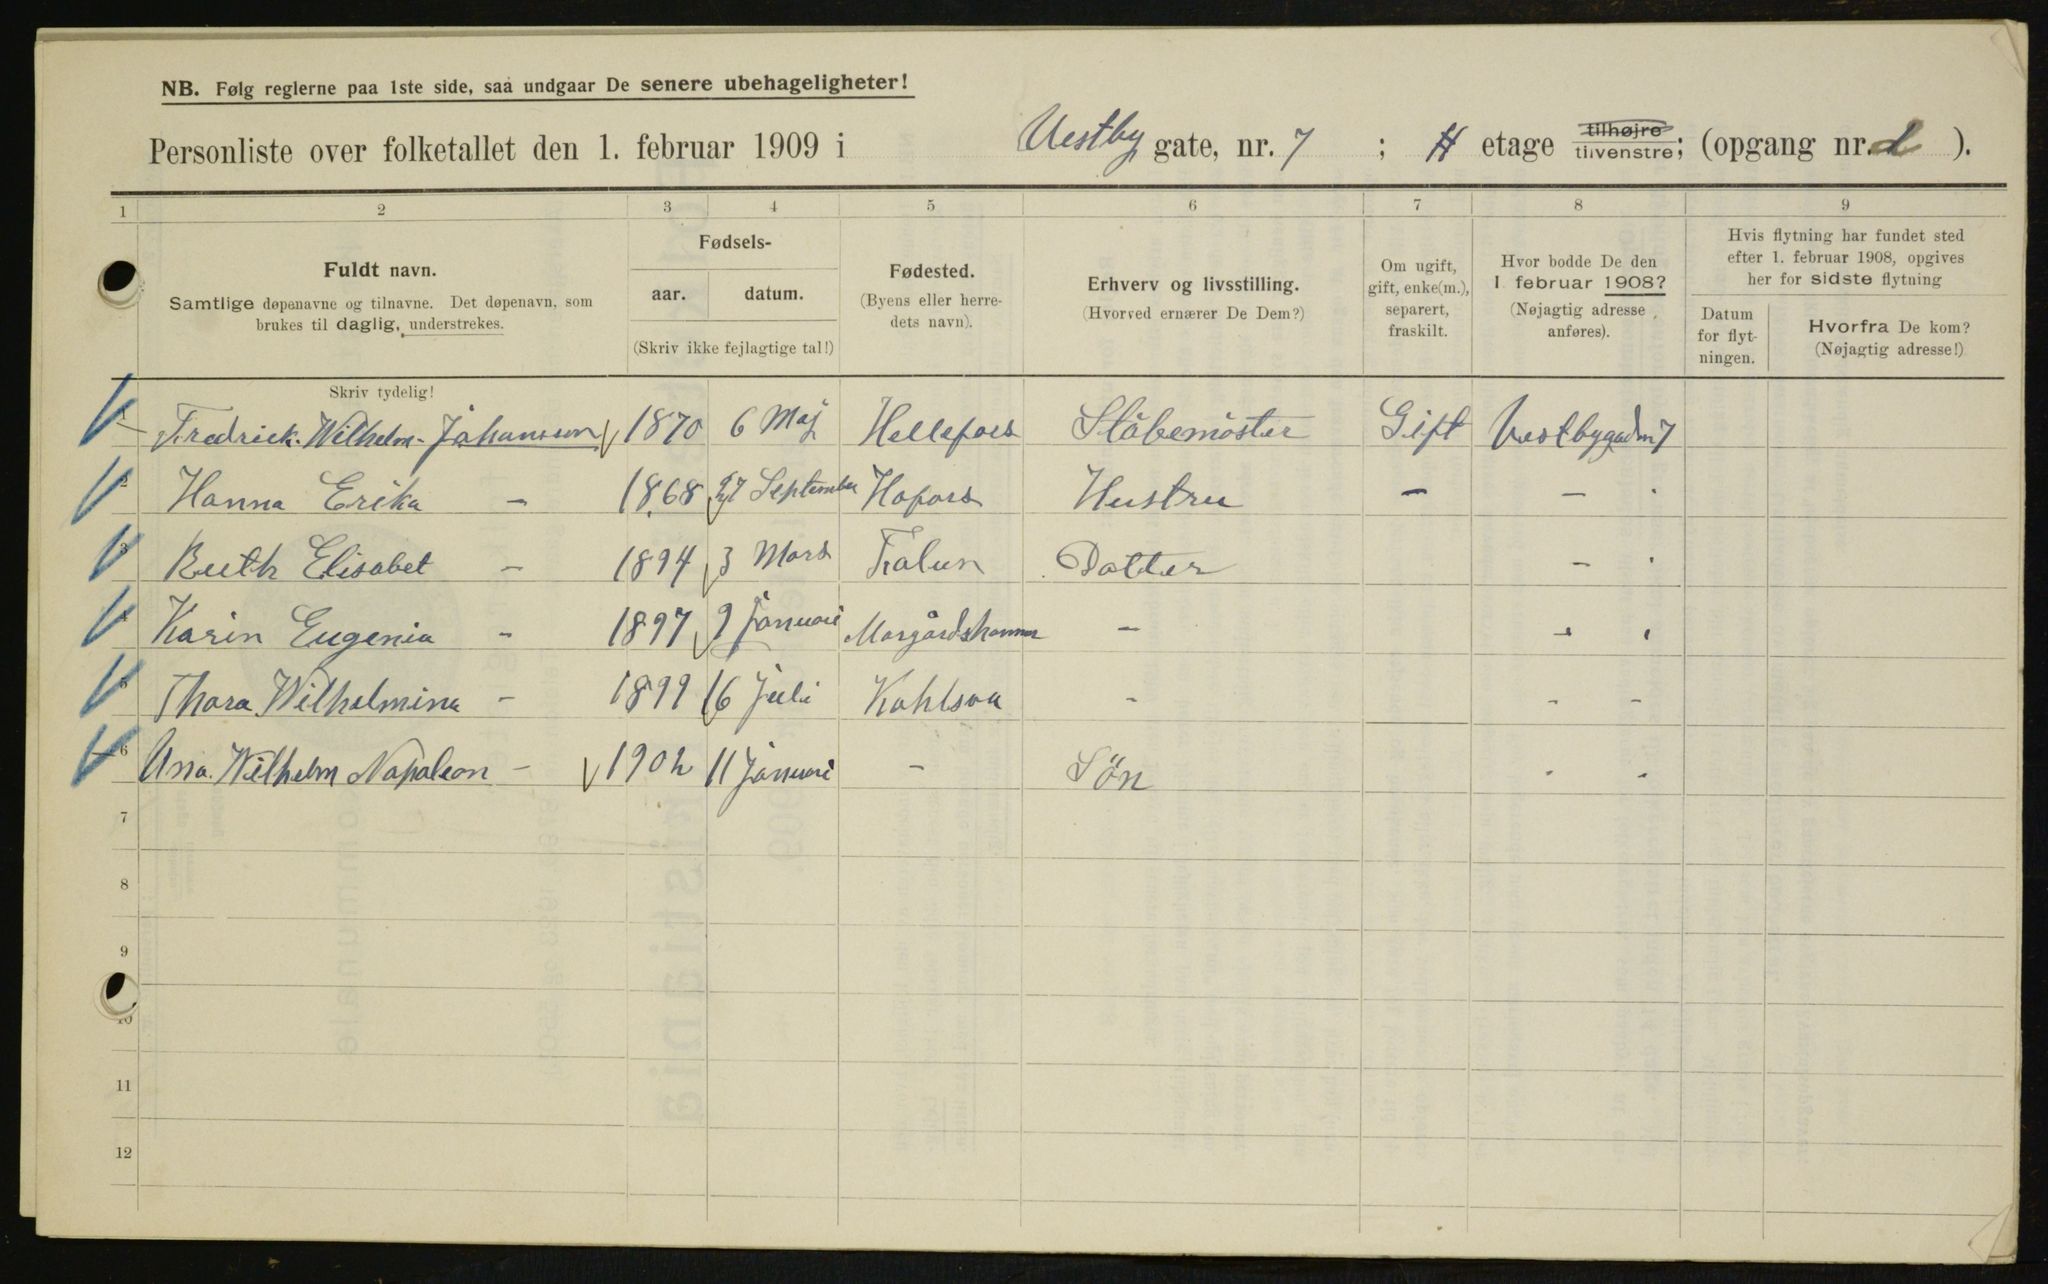 NB. Følg reglerne paa 1ste side, saa undgaar De senere ubehageligheter!
Personliste over folketallet den 1. februar 1909 i Vestby gate, nr. 7 ; etage tilhøjre tilvenstre; (opgang nr. ).
1 2 3 4 5 6 7 8 9
Fuldt navn.
Samtlige døpenavne og tilnavne. Det døpenavn, som
brukes til daglig, understrekes.
Skriv tydelig!
Fødsels-
aar. datum.
(Skriv ikke fejlagtige tal!)
Fødested.
(Byens eller herre-
dets navn).
Erhverv og livsstilling.
(Hvorved ernærer De Dem?)
Om ugift,
gift, enke(m.),
separert,
fraskilt.
Hvor bodde De den
1 februar 1908?
(Nøjagtig adresse
anføres).
Hvis flytning har fundet sted
efter 1. februar 1908, opgives
her for sidste flytning
Datum
for flyt-
ningen.
Hvorfra De kom?
(Nøjagtig adresse!)
1 Fredrick. Wilhelm. Johansson 1870 6 Maj Hellefors Gift Vestbygadn 7
2 Hanna Erika - 1868 27 September Hofors Hustru - -
3 Ruth Elisabet - 1894 3 Mars Falun Dotter -
4 Karin Eugenia - 1897 9 Januari Morgårdshammar -
5 Thora Wilhelmina - 1899 16 Juli - - -
6 Wilhelm Napoleon - 1902 11 Januari - Sön
7
8
9
10
11
12